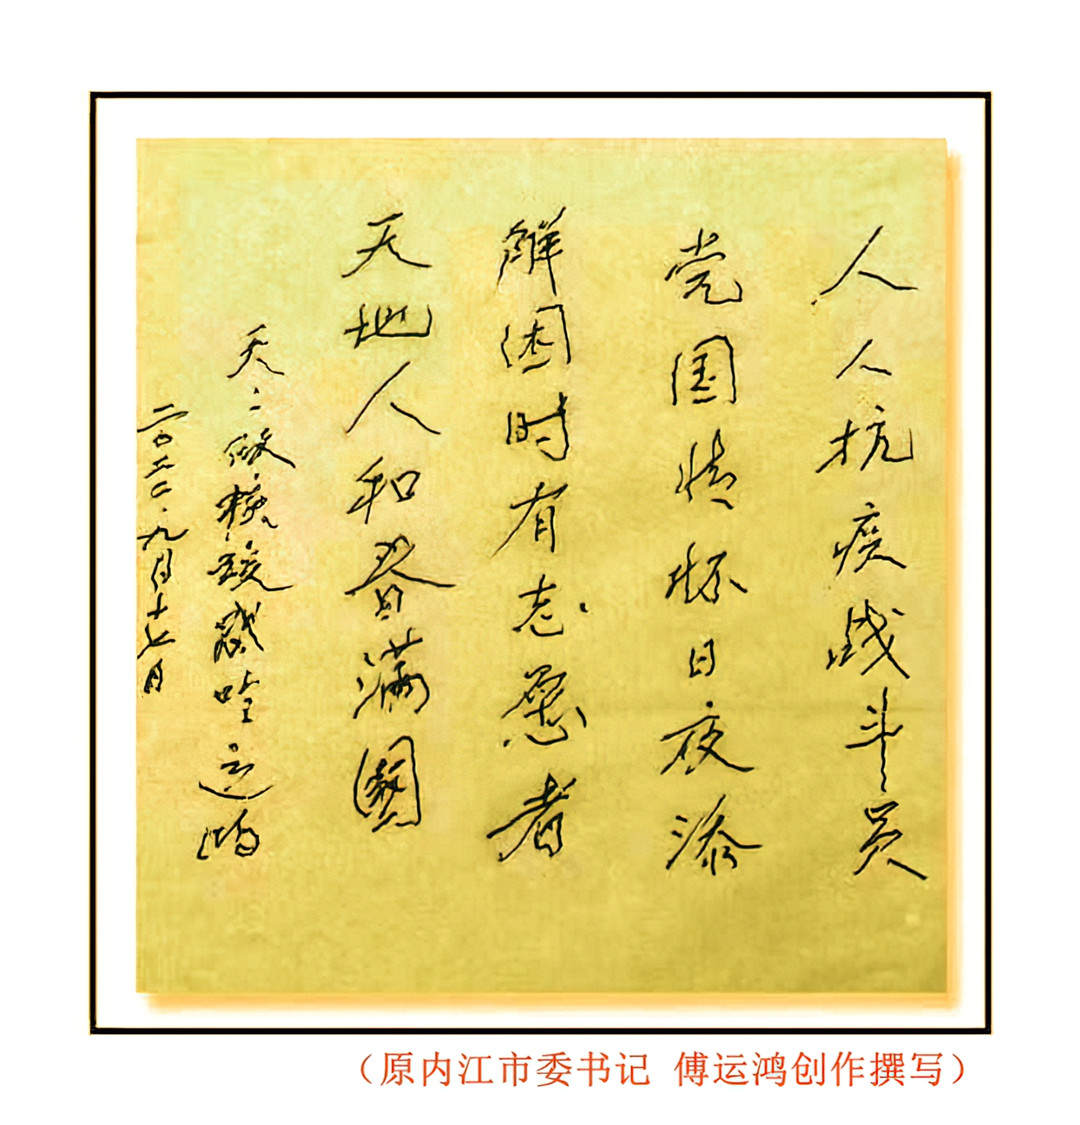 人人抗疫战斗员
党国情怀日夜添
解困时有志愿者
天地人和春满园
天二做核酸感吟运鸿
二〇二二·九月十七日
（原内江市委书记 傅运鸿创作撰写）